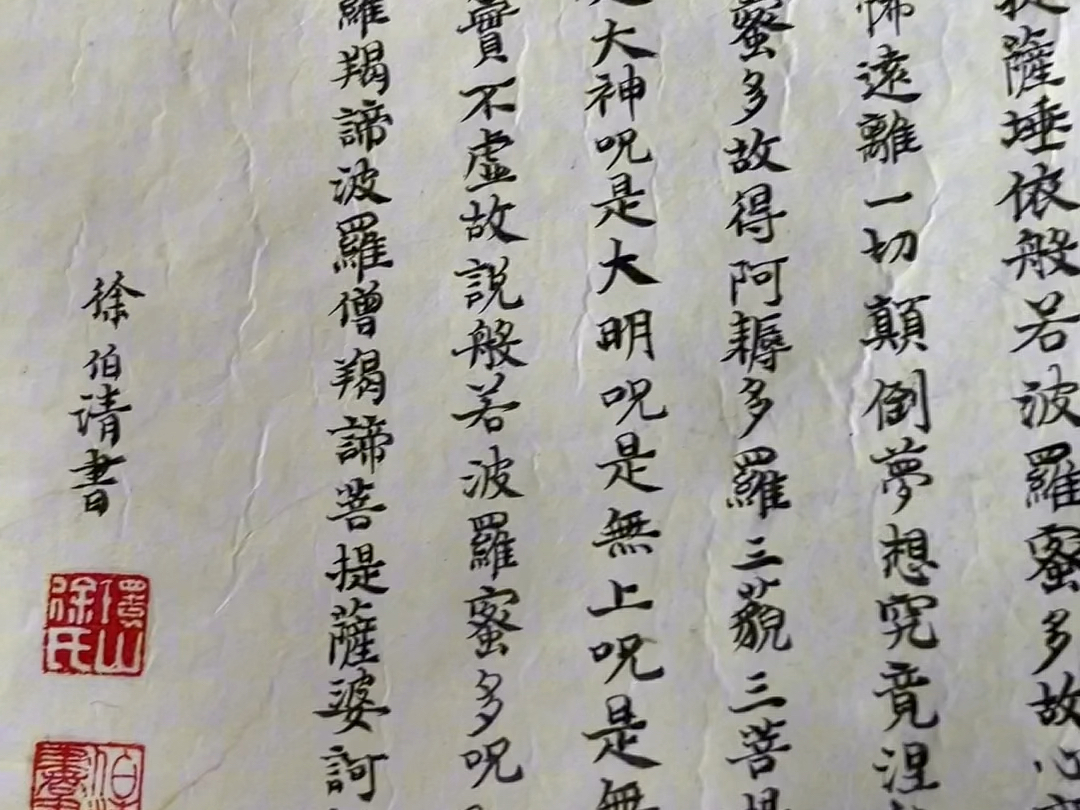 薩埵依般若波羅蜜多故心
怖遠離一切顛倒夢想究竟涅
蜜多故得阿耨多羅三藐三菩提
是大神呪是大明呪是無上呪是無
實不虛故說般若波羅蜜多呪
羅羯諦波羅僧羯諦菩提薩婆訶
徐伯清書
山
徐氏
伯